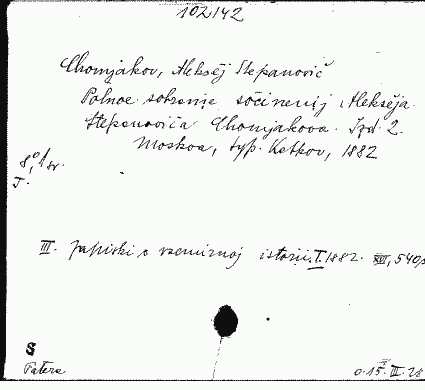 102142
Chomjakov, Aleksěj Stepanovič
Polnoe sobranie sočinenij Alekseja
Stepanoviča Chomjakova. Izd. 2.
Moskva, typ. Katkov, 1882
8°, 1 sv.
III. Zapiski o vsemirnoj istorii. I. 1882. XVI, 540 s
S
Patera